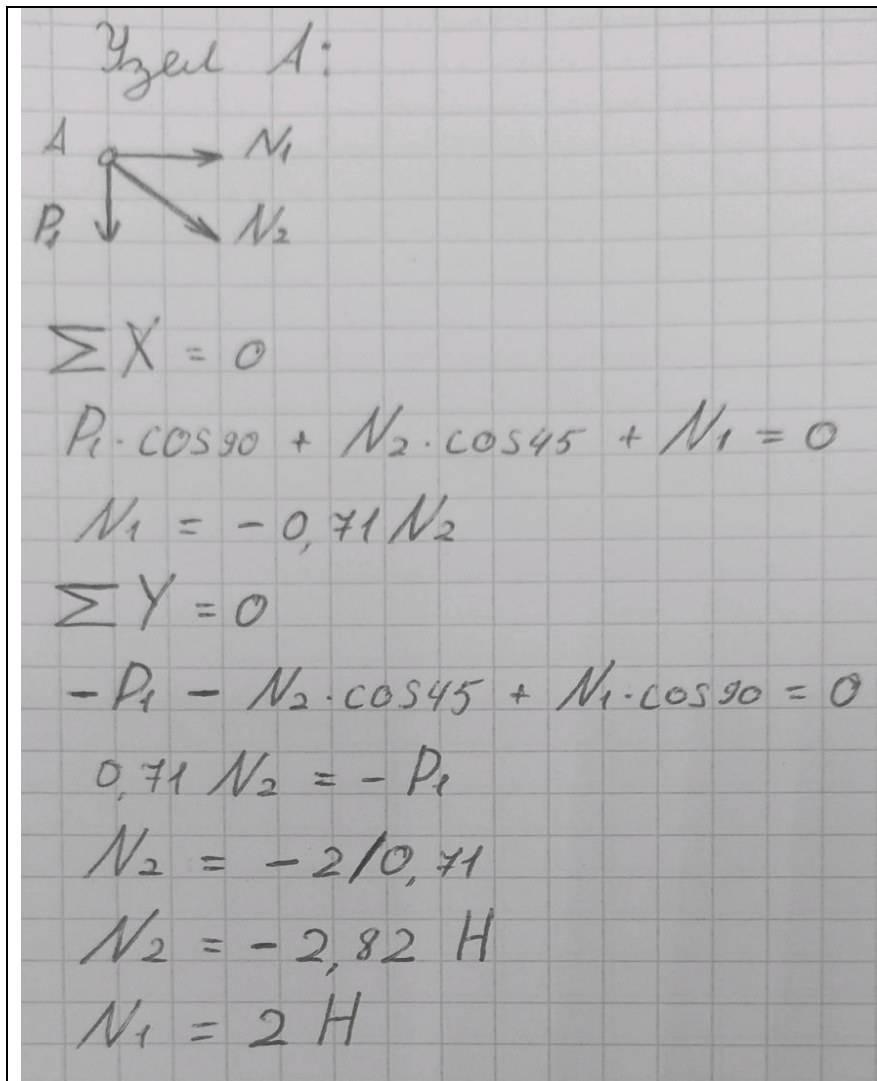 Узел А:
A N₁
P₁ N₂
∑X = 0
P₁ · cos90 + N₂ · cos45 + N₁ = 0
N₁ = - 0,71 N₂
∑Y = 0
- P₁ - N₂ · cos45 + N₁ · cos90 = 0
0,71 N₂ = - P₁
N₂ = - 2/0,71
N₂ = - 2,82 Н
N₁ = 2 Н